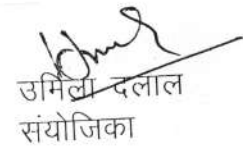 उर्मिला दलाल
संयोजिका